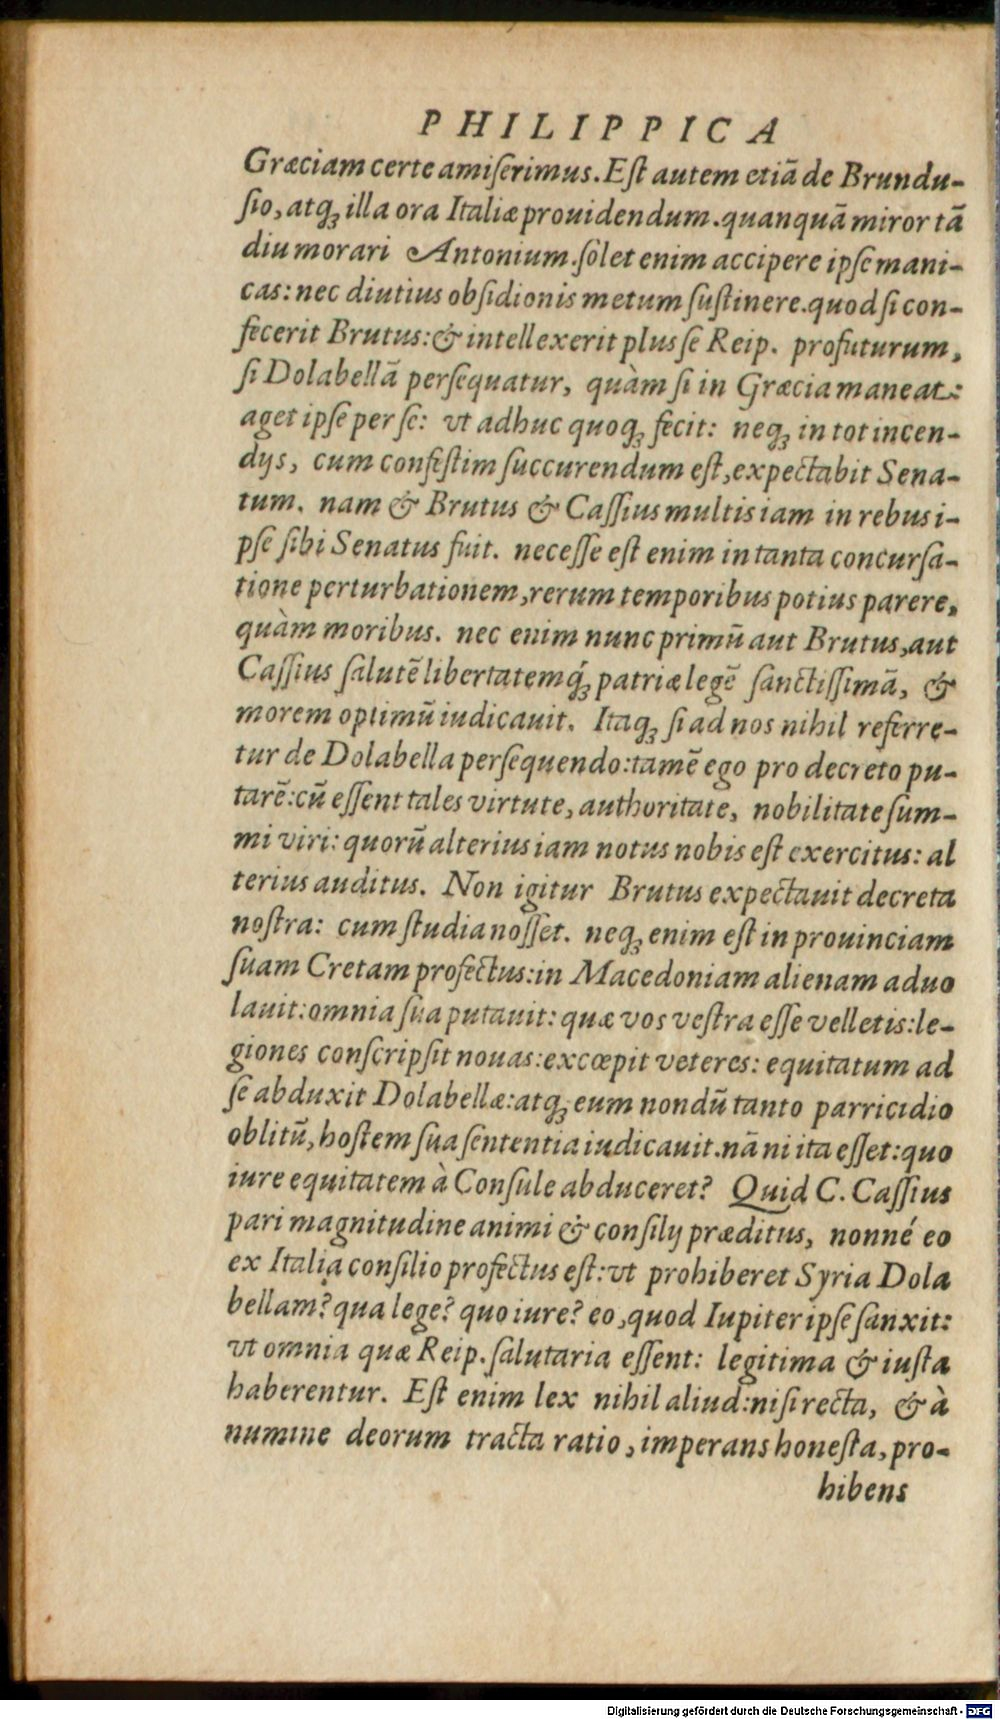 PHILIPPICA
Græciam certe amiſerimus. Eſt autem etiã de Brundu-
ſio, atqꝫ illa ora Italiæ prouidendum. quanquã miror tã
diu morari Antonium. ſolet enim accipere ipſe mani-
cas: nec diutius obſidionis metum ſuſtinere. quod ſi con-
fecerit Brutus: & intellexerit plus ſe Reip. profuturum,
ſi Dolabellã perſequatur, quàm ſi in Græcia maneat:
aget ipſe per ſe: vt adhuc quoqꝫ fecit: neqꝫ in tot incen-
dijs, cum confeſtim ſuccurendum eſt, expectabit Sena-
tum. nam & Brutus & Caſſius multis iam in rebus i-
pſe ſibi Senatus fuit. neceſſe eſt enim in tanta concurſa-
tione perturbationem, rerum temporibus potius parere,
quàm moribus. nec enim nunc primũ aut Brutus, aut
Caſſius ſalutẽ libertatemq́ꝫ patriæ legẽ ſanctiſſimã, &
morem optimũ iudicauit. Itaqꝫ ſi ad nos nihil referre-
tur de Dolabella perſequendo: tamẽ ego pro decreto pu-
tarẽ: cũ eſſent tales virtute, authoritate, nobilitate ſum-
mi viri: quorũ alterius iam notus nobis eſt exercitus: al
terius auditus. Non igitur Brutus expectauit decreta
noſtra: cum ſtudia noſſet. neqꝫ enim eſt in prouinciam
ſuam Cretam profectus: in Macedoniam alienam aduo
lauit: omnia ſua putauit: quæ vos veſtra eſſe velletis: le-
giones conſcripſit nouas: excœpit veteres: equitatum ad
ſe abduxit Dolabellæ: atqꝫ eum nondũ tanto parricidio
oblitũ, hoſtem ſua ſententia iudicauit. nã ni ita eſſet: quo
iure equitatem à Conſule abduceret? Quid C. Caſſius
pari magnitudine animi & conſilij præditus, nonné eo
ex Italia conſilio profectus eſt: vt prohiberet Syria Dola
bellam? qua lege? quo iure? eo, quod Iupiter ipſe ſanxit:
vt omnia quæ Reip. ſalutaria eſſent: legitima & iuſta
haberentur. Eſt enim lex nihil aliud: niſi recta, & à
numine deorum tracta ratio, imperans honeſta, pro-
hibens
Digitalisierung gefördert durch die Deutsche Forschungsgemeinschaft - DFG